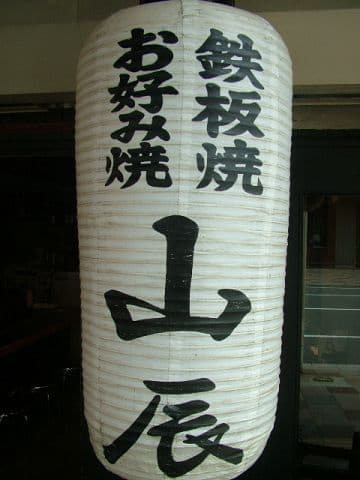 鉄板焼
お好み焼
山辰